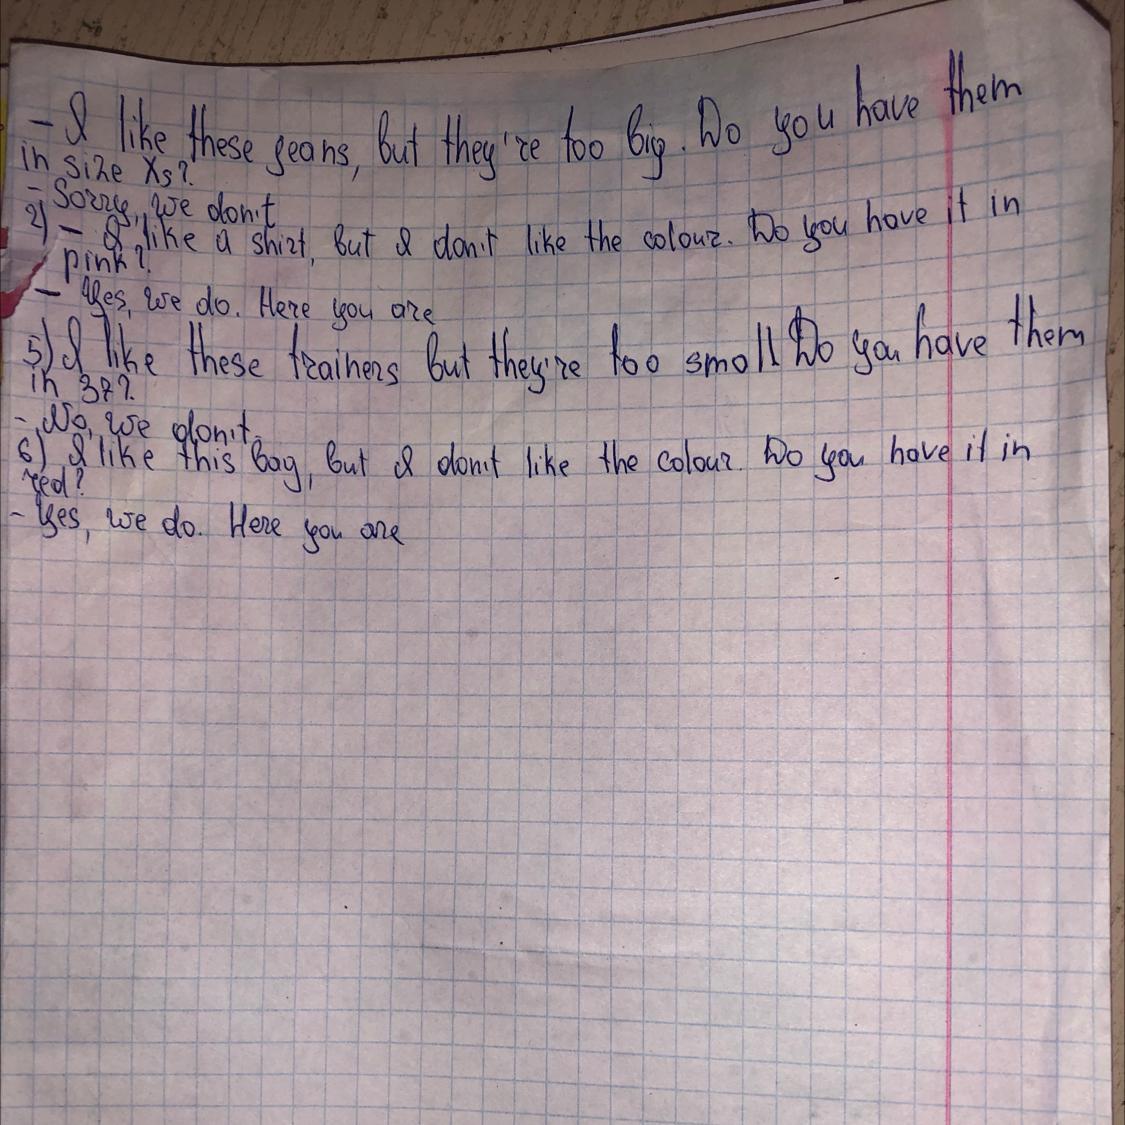 - I like these geans, but they're too big. Do you have them
in size Xs?
- Sorry, we don't
2) - I like a shirt, but I don't like the colour. Do you have it in
pink?
- Yes, we do. Here you are
5) I like these trainers but they're too small Do you have them
in 37?
- No, we don't.
6) I like this bag, but I don't like the colour. Do you have it in
red?
- Yes, we do. Here you are